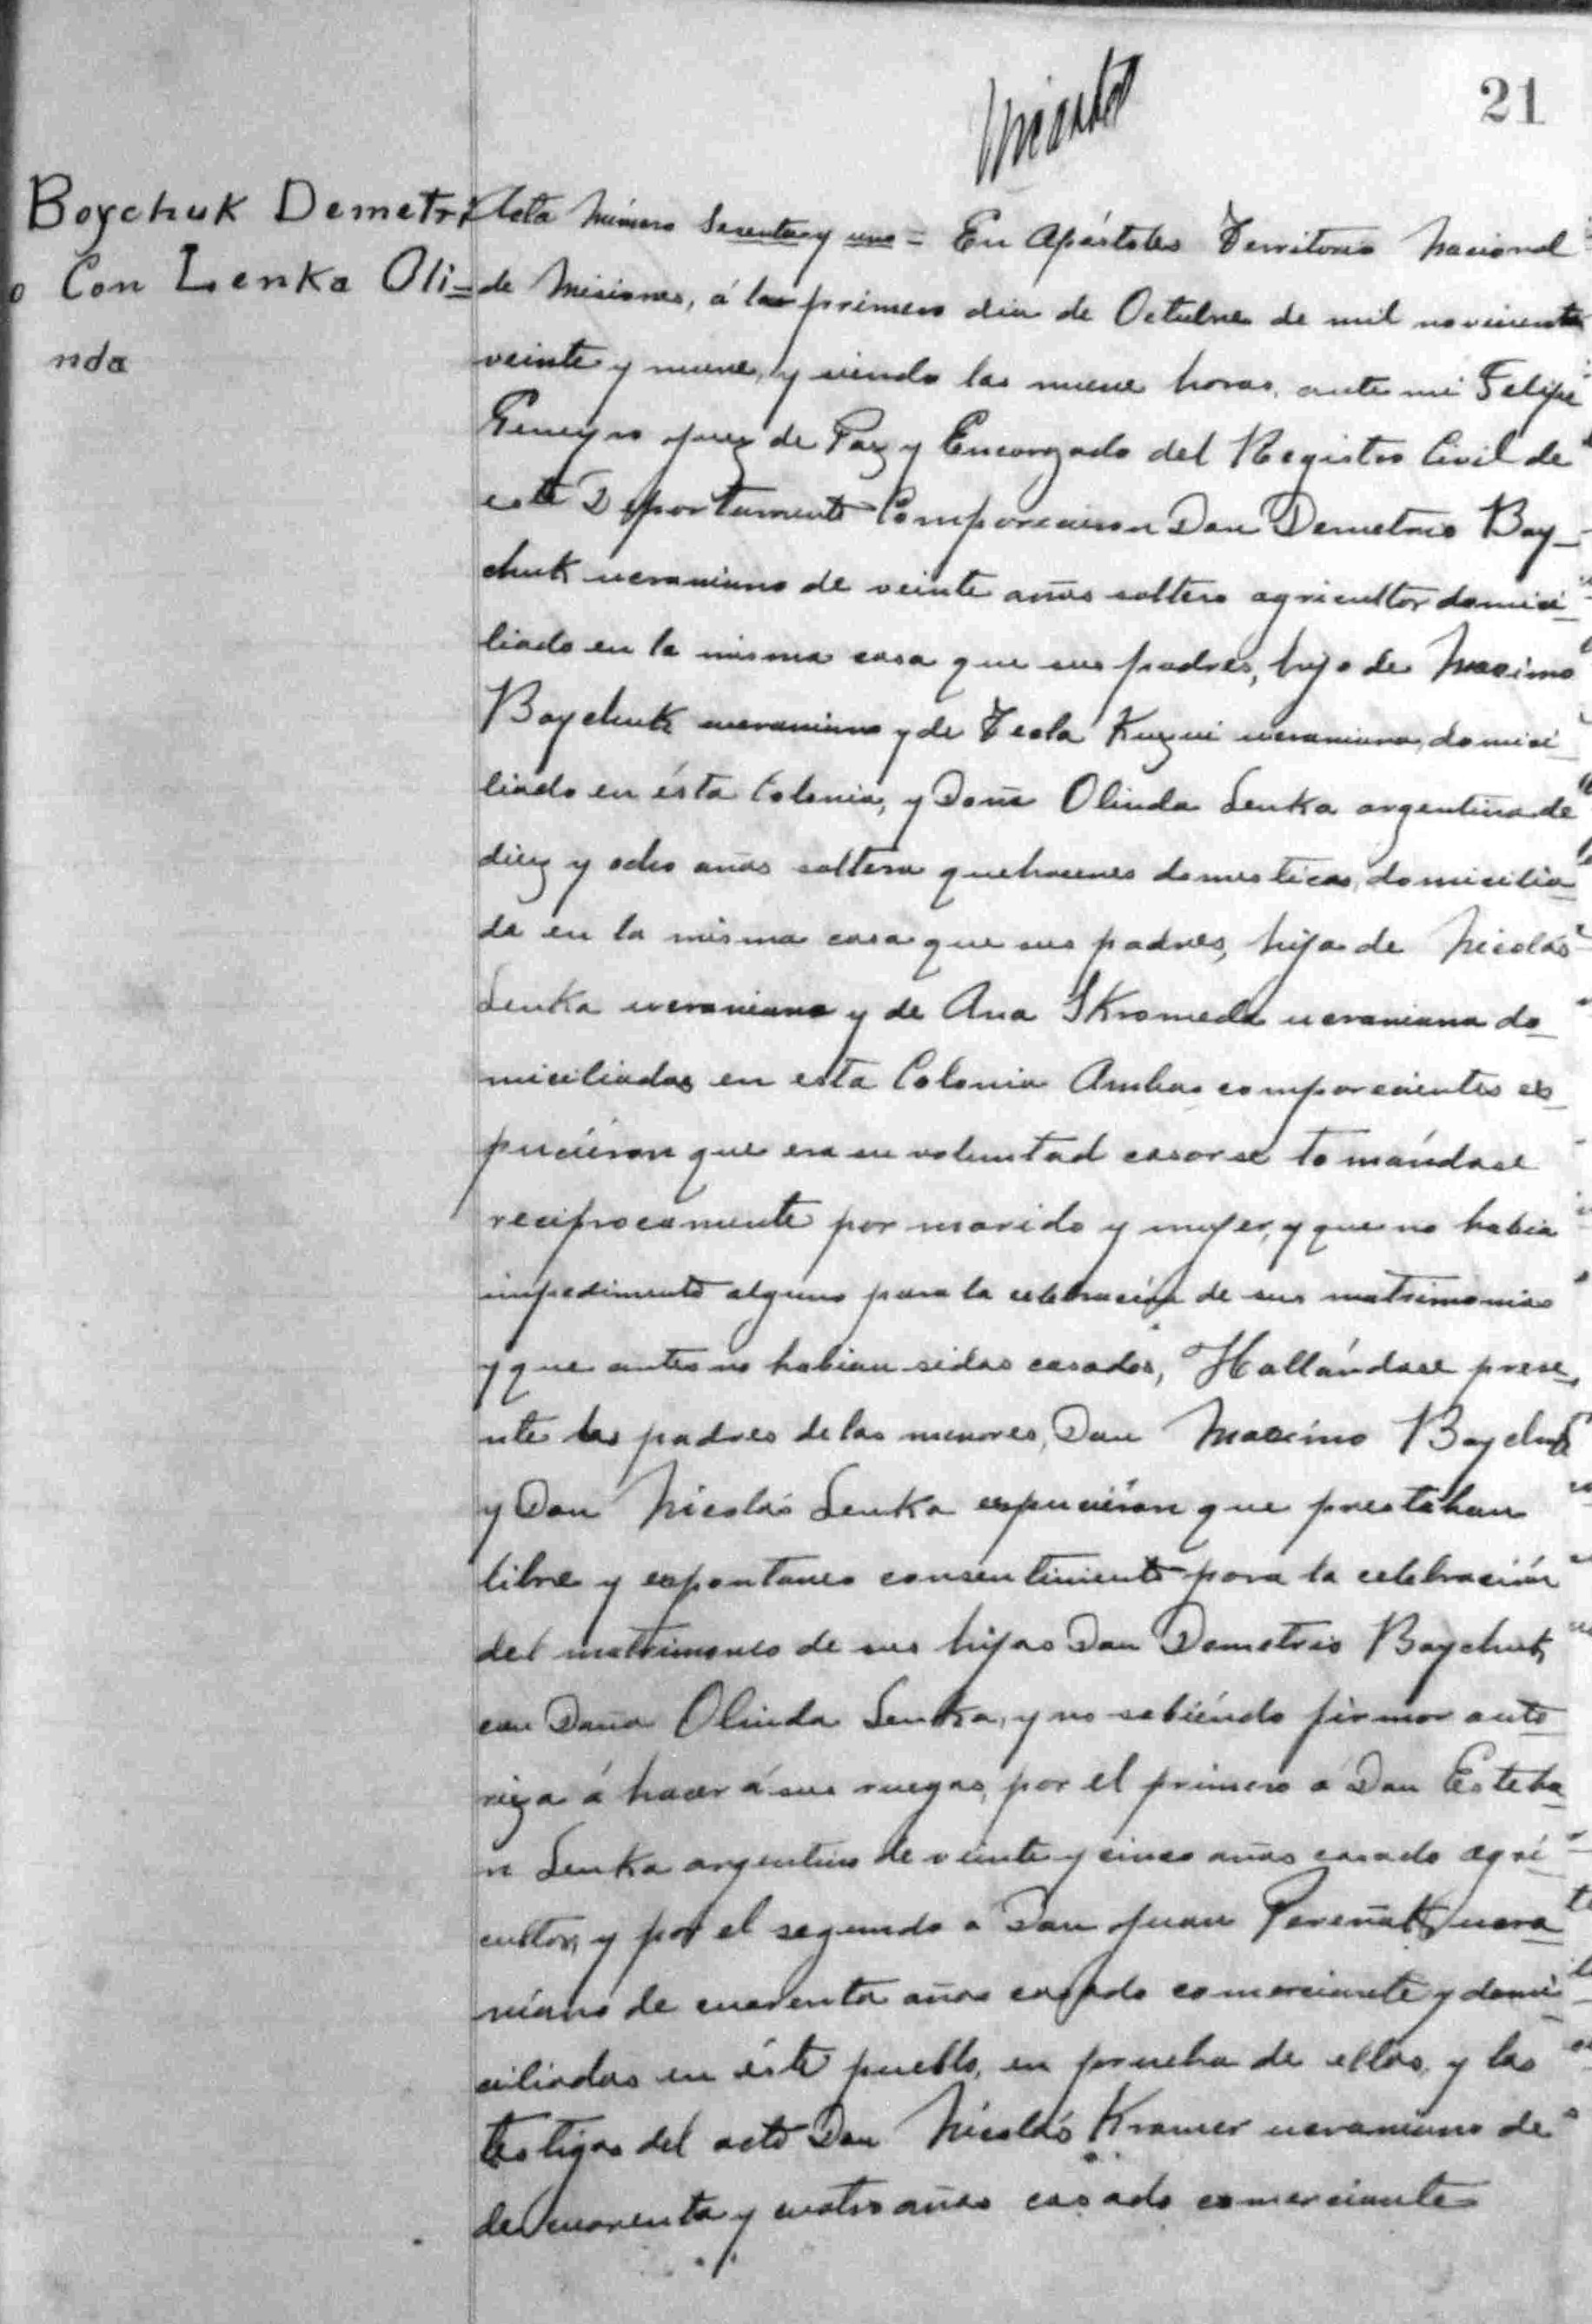 21
Boychuk Demetri
o Con Lenka Oli=
nda
Acta Número Sesenta y uno = En Apóstoles Territorio Nacional
de Misiones, á los primero dia de Octubre de mil noveciento
veinte y nueve, y siendo las nueve horas, ante mi Felipe
Juez de Paz y Encargado del Registro Civil de
este Departamento Comparecieron Don Demetrio Boy-
chuk ucraniano de veinte años soltero agricultor domici
liado en la misma casa que sus padres, hijo de Maximo
Boychuk ucraniano y de Tecla ucraniana, domici
liado en ésta Colonia, y Doña Olinda Lenka argentina de
diez y ocho años soltera quehaceres domesticos, domicilia
da en la misma casa que sus padres, hija de Nicolás
Lenka ucraniano y de Ana Skromeda ucraniana do
miciliados en esta Colonia Ambos comparecientes es
pucieron que era su voluntad casarse tomándose
reciprocamente por marido y mujer, y que no habia
impedimento alguno para la celebración de sus matrimonios
y que antes no habian sidos casados, Hallándose prese
nte los padres de los menores, Don Maximo Boychuk
y Don Nicolás Lenka espucieron que prestaban
libre y espontaneo consentimiento para la celebración
del matrimonio de sus hijos Don Demetrio Boychuk
con Doña Olinda Lenka, y no sabiéndo firmar auto
riza á hacer á sus ruegos, por el primero a Don Esteba
n Lenka argentino de veinte y cinco años casado agri
cultor, y por el segundo a Don Juan ucra
niano de cuarenta años casado comerciante y domi
ciliados en éste pueblo, en prueba de ellos, y los
testigos del acto Don Nicolás Kramer ucraniano de
de cuarenta y cuatro años casado comerciante